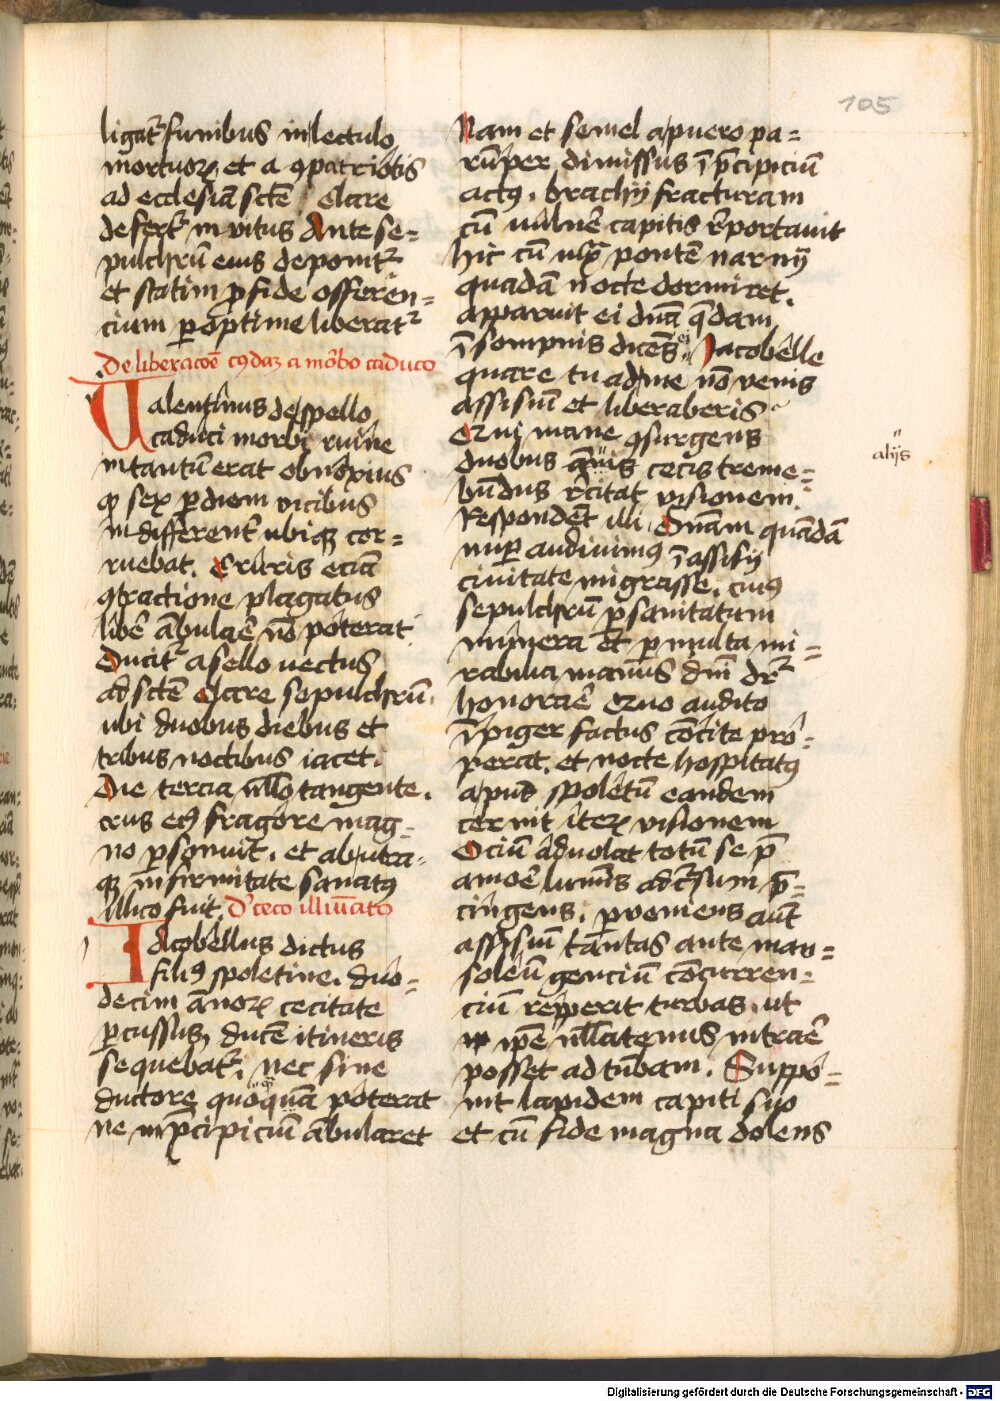 105
ligat᷑ funibus in lectulo
mortuoꝝ et a ꝯpatriotis
ad ecclesiā sctē Clare
defert᷑ invitus Ante se=
pulchrū eius deponit᷑
et statim ꝑ fide offeren=
cium ꝑoptime liberat᷑
De liberacōe cuiꝰdaꝫ a morbo caduco
Ualentinus de spello
caduci morbi ruine
intantū erat obnoxius
ꝙ sex ꝑ diem vicibus
indifferent ubiqꝫ cor=
ruebat. Cruris eciā
ꝯtractione plagatus
libere ābulare nō poterat
Ducit᷑ asello vectus
ad sctē Clare sepulchrū
ubi duobus diebus et
tribus noctibus iacet.
Die tercia nllo tangente.
crus eiꝰ fragore mag=
no ꝑsonuit. et ab utra=
qꝫ infirmitate sanatꝰ
illico fuit. De ceco illuīato
Iacobellus dictus
filiꝰ spoletine. duo=
decim ānoꝝ cecitate
ꝑcussus, ducē itineris
sequebat᷑. nec sine
ductore quoquā poterat
ne in p̄cipiciū ābularet
Nam et semel a puero pa=
rūper dimissus ī p̄cipiciū
actꝰ. brachij fracturam
cū vulnere capitis reportavit
hic cū iuxta pontē narnij
quadā nocte dormiret.
apparuit ei dnā q̄dam
ī sompnis dicens ei Iacobelle
quare tu ad me nō venis
assisiū et liberaberis
Qui mane ꝯsurgens
duobus aliis cecis treme=
būdus recitat visionem.
Respondēt illi. Dnam quādā
nuꝑ audivimꝰ ī assisij
civitate migrasse. cuiꝰ
sepulchrū ꝑ sanitatum
munera et ꝑ multa mi=
rabilia manus dni dr᷑
honorare Quo audito
īpiger factus concite pro=
perat. et nocte hospitatꝰ
apud spoletū eandem
cernit iteꝝ visionem
Ociꝰ advolat totū se p̄
amore luminis ad cursum p̄=
cingens. ꝑveniens aut
assisiū tantas ante mau=
soleū genciū concurren=
ciū repperit turbas. ut
ipe nllatenus intrare
posset ad tūbam. Suppo=
nit lapidem capiti suo
et cū fide magna dolens
alijs
Digitalisierung gefördert durch die Deutsche Forschungsgemeinschaft - DFG